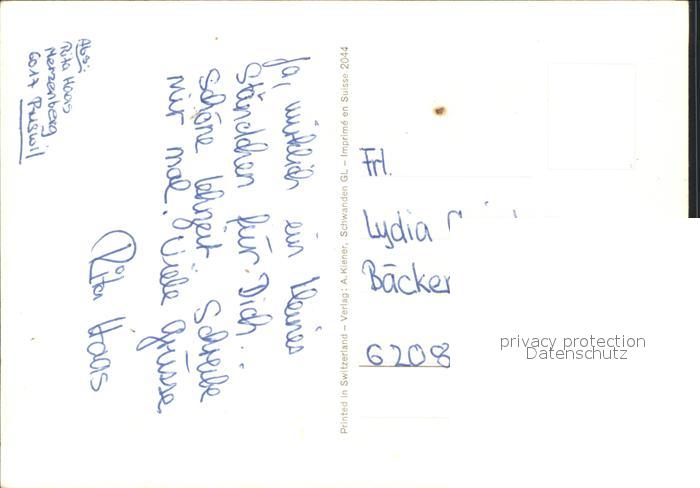 Abs:
Rita Haas
Merzenberg
6017 Ruswil
Ja, wirklich ein kleines
Ständchen für Dich...
schöne Lehrzeit Schreibe
mir mal. Viele Grüsse.
Rita Haas
Printed in Switzerland – Verlag: A. Kiener, Schwanden GL – Imprimé en Suisse 2044
Frl.
Lydia
Bäcker
6208
privacy protection
Datenschutz